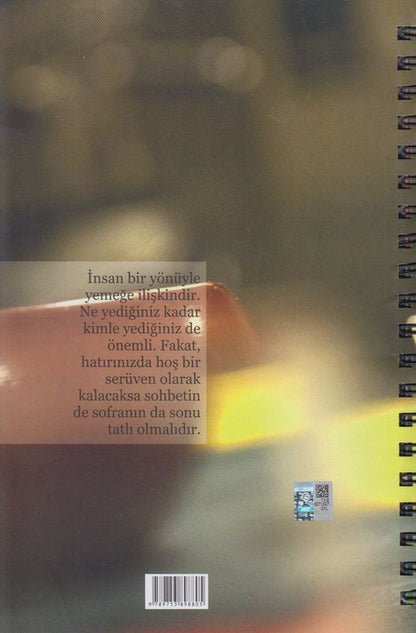 İnsan bir yönüyle
yemeğe ilişkindir.
Ne yediğiniz kadar
kimle yediğiniz de
önemli. Fakat,
hatırınızda hoş bir
serüven olarak
kalacaksa sohbetin
de sofranın da sonu
tatlı olmalıdır.